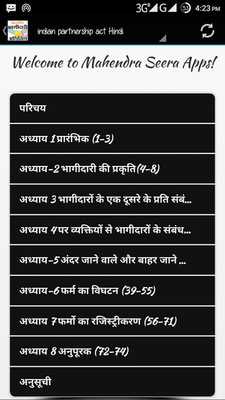 3G G 4:23 PM
indian partnership act Hindi
Welcome to Mahendra Seera Apps!
परिचय
अध्याय 1 प्रारंभिक (1-3)
अध्याय-2 भागीदारी की प्रकृति(4-8)
अध्याय 3 भागीदारों के एक दूसरे के प्रति संबं...
अध्याय 4 पर व्यक्तियों से भागीदारों के संबंध...
अध्याय-5 अंदर जाने वाले और बाहर जाने ...
अध्याय-6 फर्म का विघटन (39-55)
अध्याय 7 फर्मों का रजिस्ट्रीकरण (56-71)
अध्याय 8 अनुपूरक (72-74)
अनुसूची